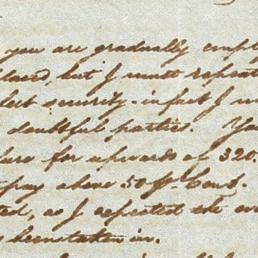 you are gradually empl
placed, but I must repeat
lect security - in fact I m
doubtful parties. Yo
for upwards of 320.
pay above 50 p Cent.
ted, as I repeated the ev
been taken in.